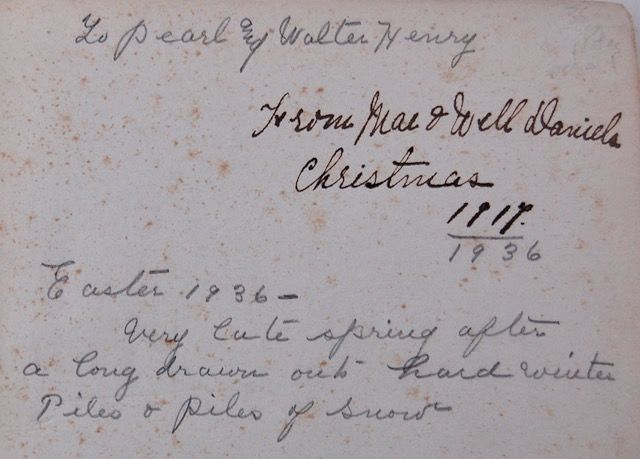 To Pearl & Walter Henry
From Mae & Will Daniels
Christmas
1917.
1936
Easter 1936 -
Very late spring after
a long drawn out hard winter
Piles & piles of snow